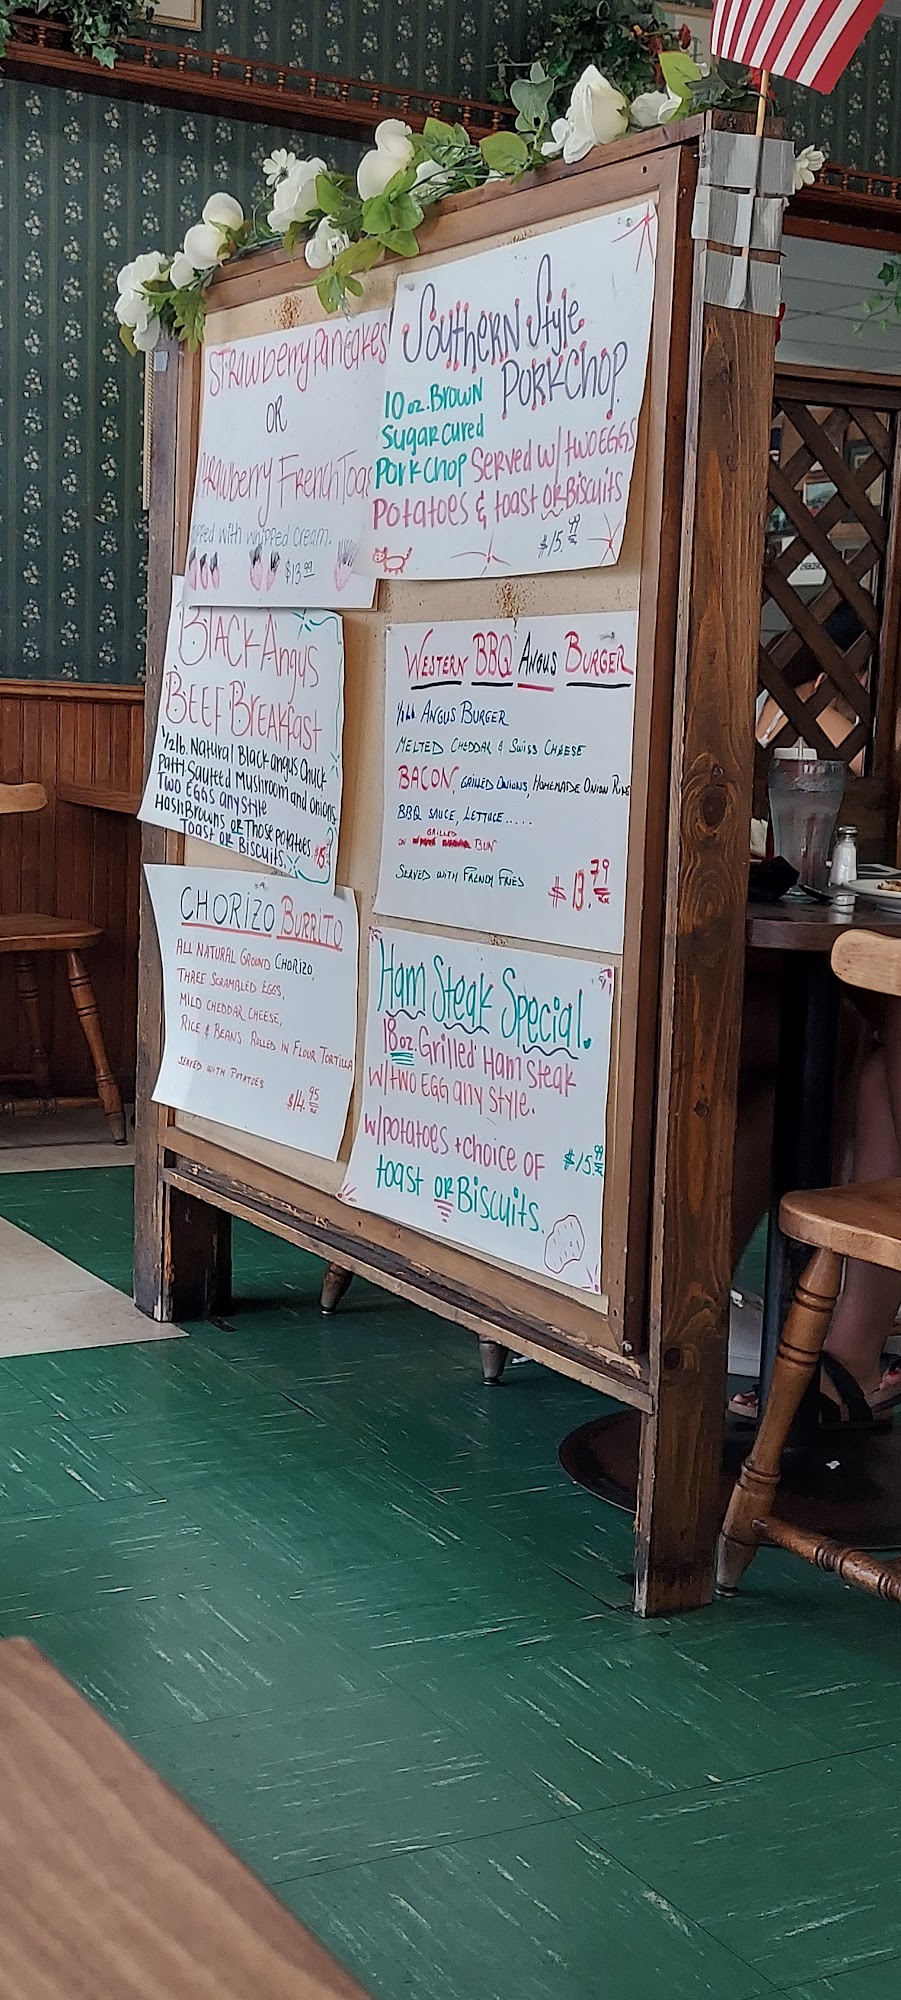 Strawberry Pancakes
OR
Strawberry French Toast
topped with whipped cream.
$13.99
Southern Style
Pork Chop
10 oz. Brown
Sugar cured
Pork Chop Served w/ two EGGS
Potatoes & toast OR Biscuits
$15.99
Black Angus
BEEF Breakfast
1/2 lb. Natural Black angus Chuck
Patty Sauteed Mushroom and onions
Two EGGS any style
HashBrowns OR Those potatoes
Toast OR Biscuits.
WESTERN BBQ ANGUS BURGER
ANGUS BURGER
MELTED CHEDDAR & SWISS CHEESE
BACON, GRILLED ONIONS, HOMEMADE ONION RING
BBQ SAUCE, LETTUCE.....
GRILLED
ON BUN
SERVED WITH FRENCH FRIES
$13.79
CHORIZO BURRITO
ALL NATURAL GROUND CHORIZO,
THREE SCRAMBLED EGGS,
MILD CHEDDAR CHEESE,
RICE & BEANS ROLLED IN FLOUR TORTILLA
SERVED WITH POTATOES
$14.95
Ham Steak Special.
18 oz. Grilled Ham Steak
w/ two EGG any style.
w/potatoes + choice of
toast OR Biscuits.
$15.99